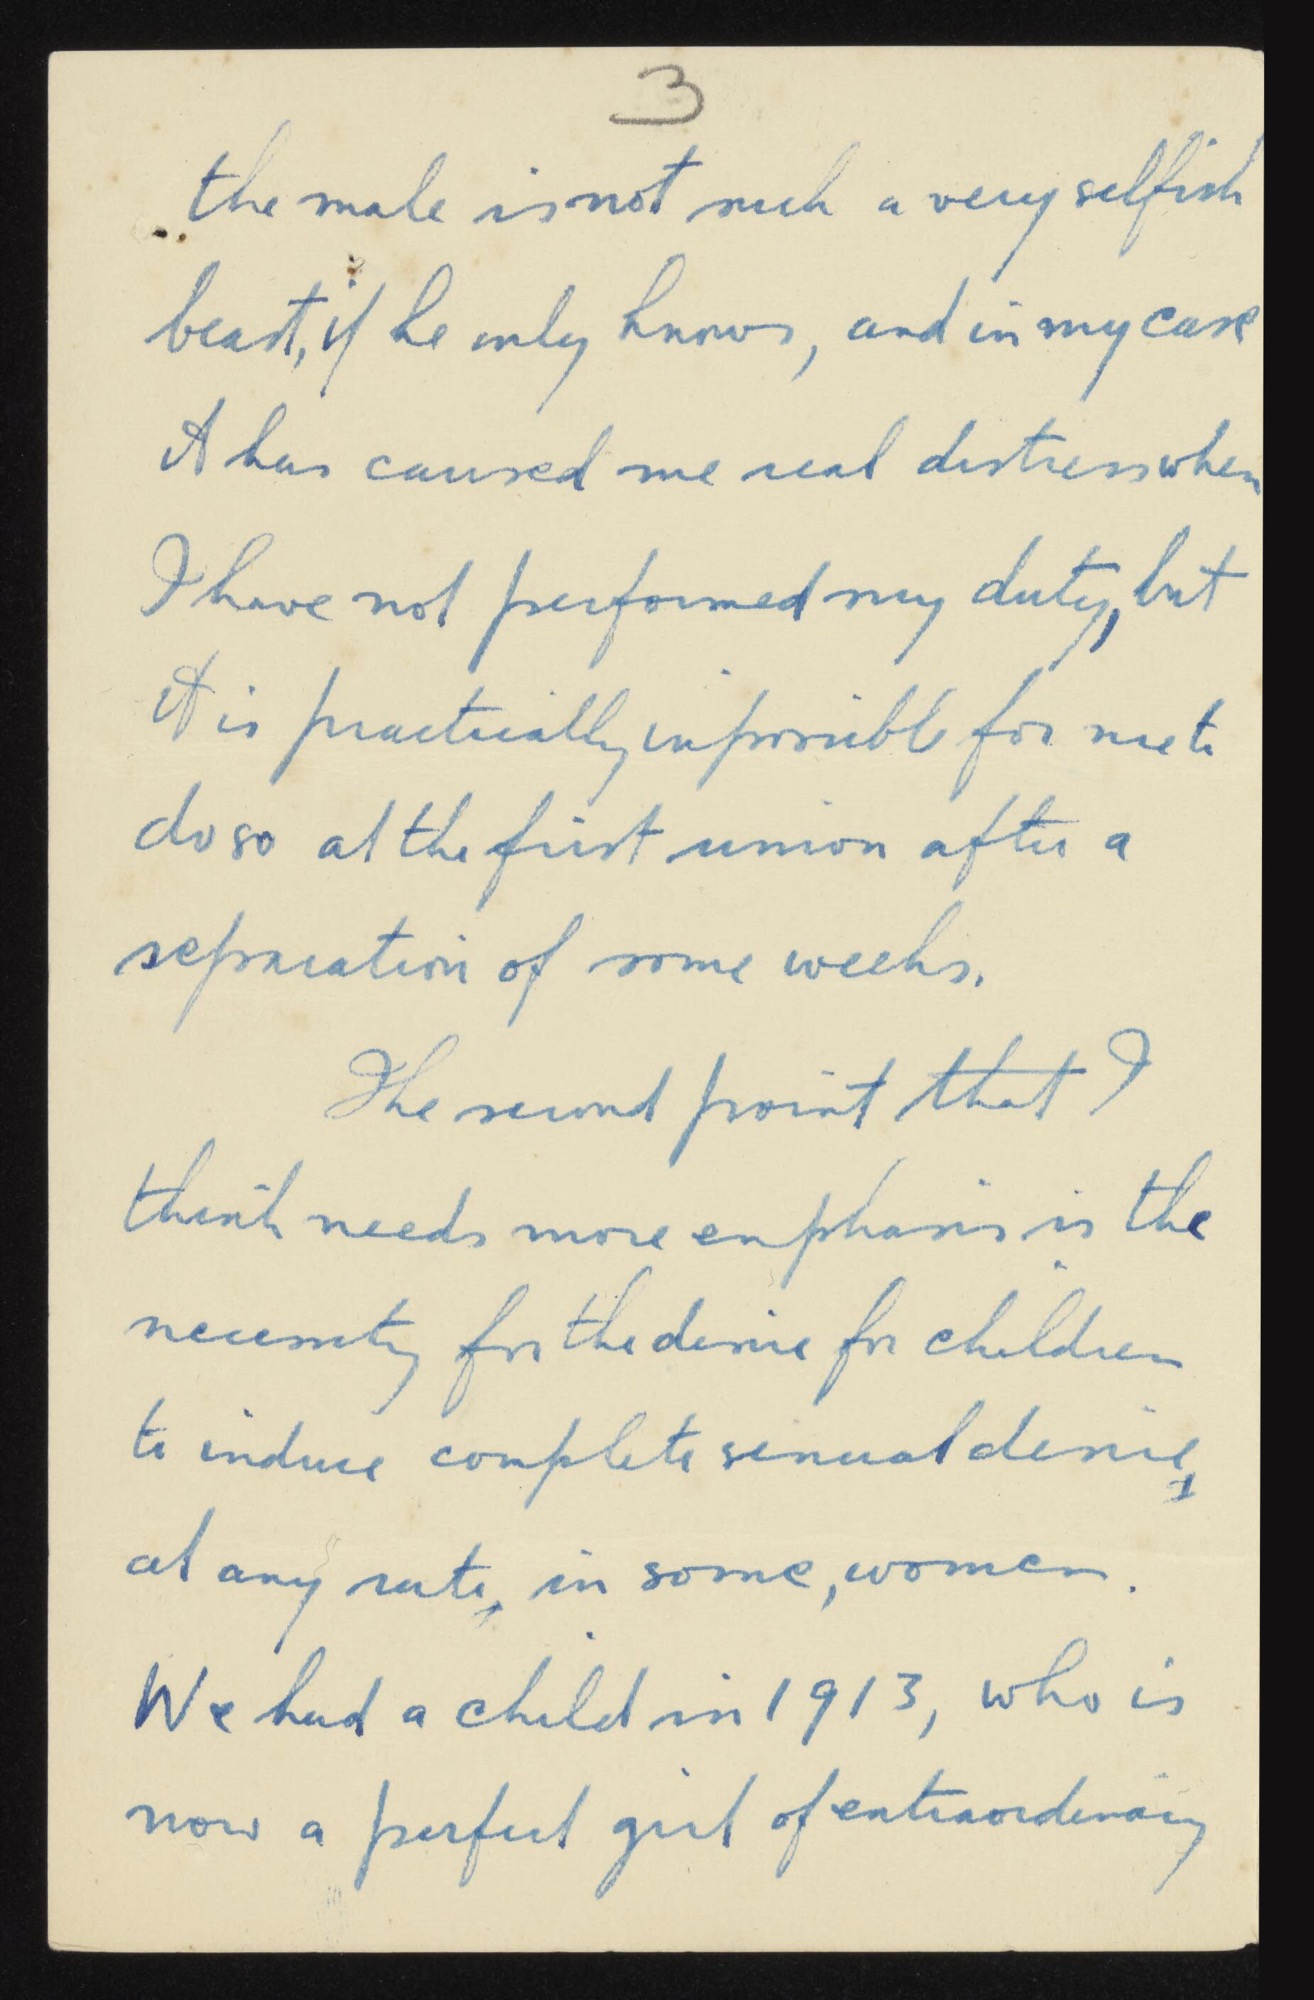 3
the male is not such a very selfish
beast, if he only knows, and in my case
it has caused me real distress when
I have not performed my duty, but
it is practically impossible for me to
do so at the first union after a
separation of some weeks.
The second point that I
think needs more emphasis is the
necessity for the desire for children
to induce complete sexual desire,
at any rate, in some, women.
We had a child in 1913, who is
now a perfect girl of extraordinary